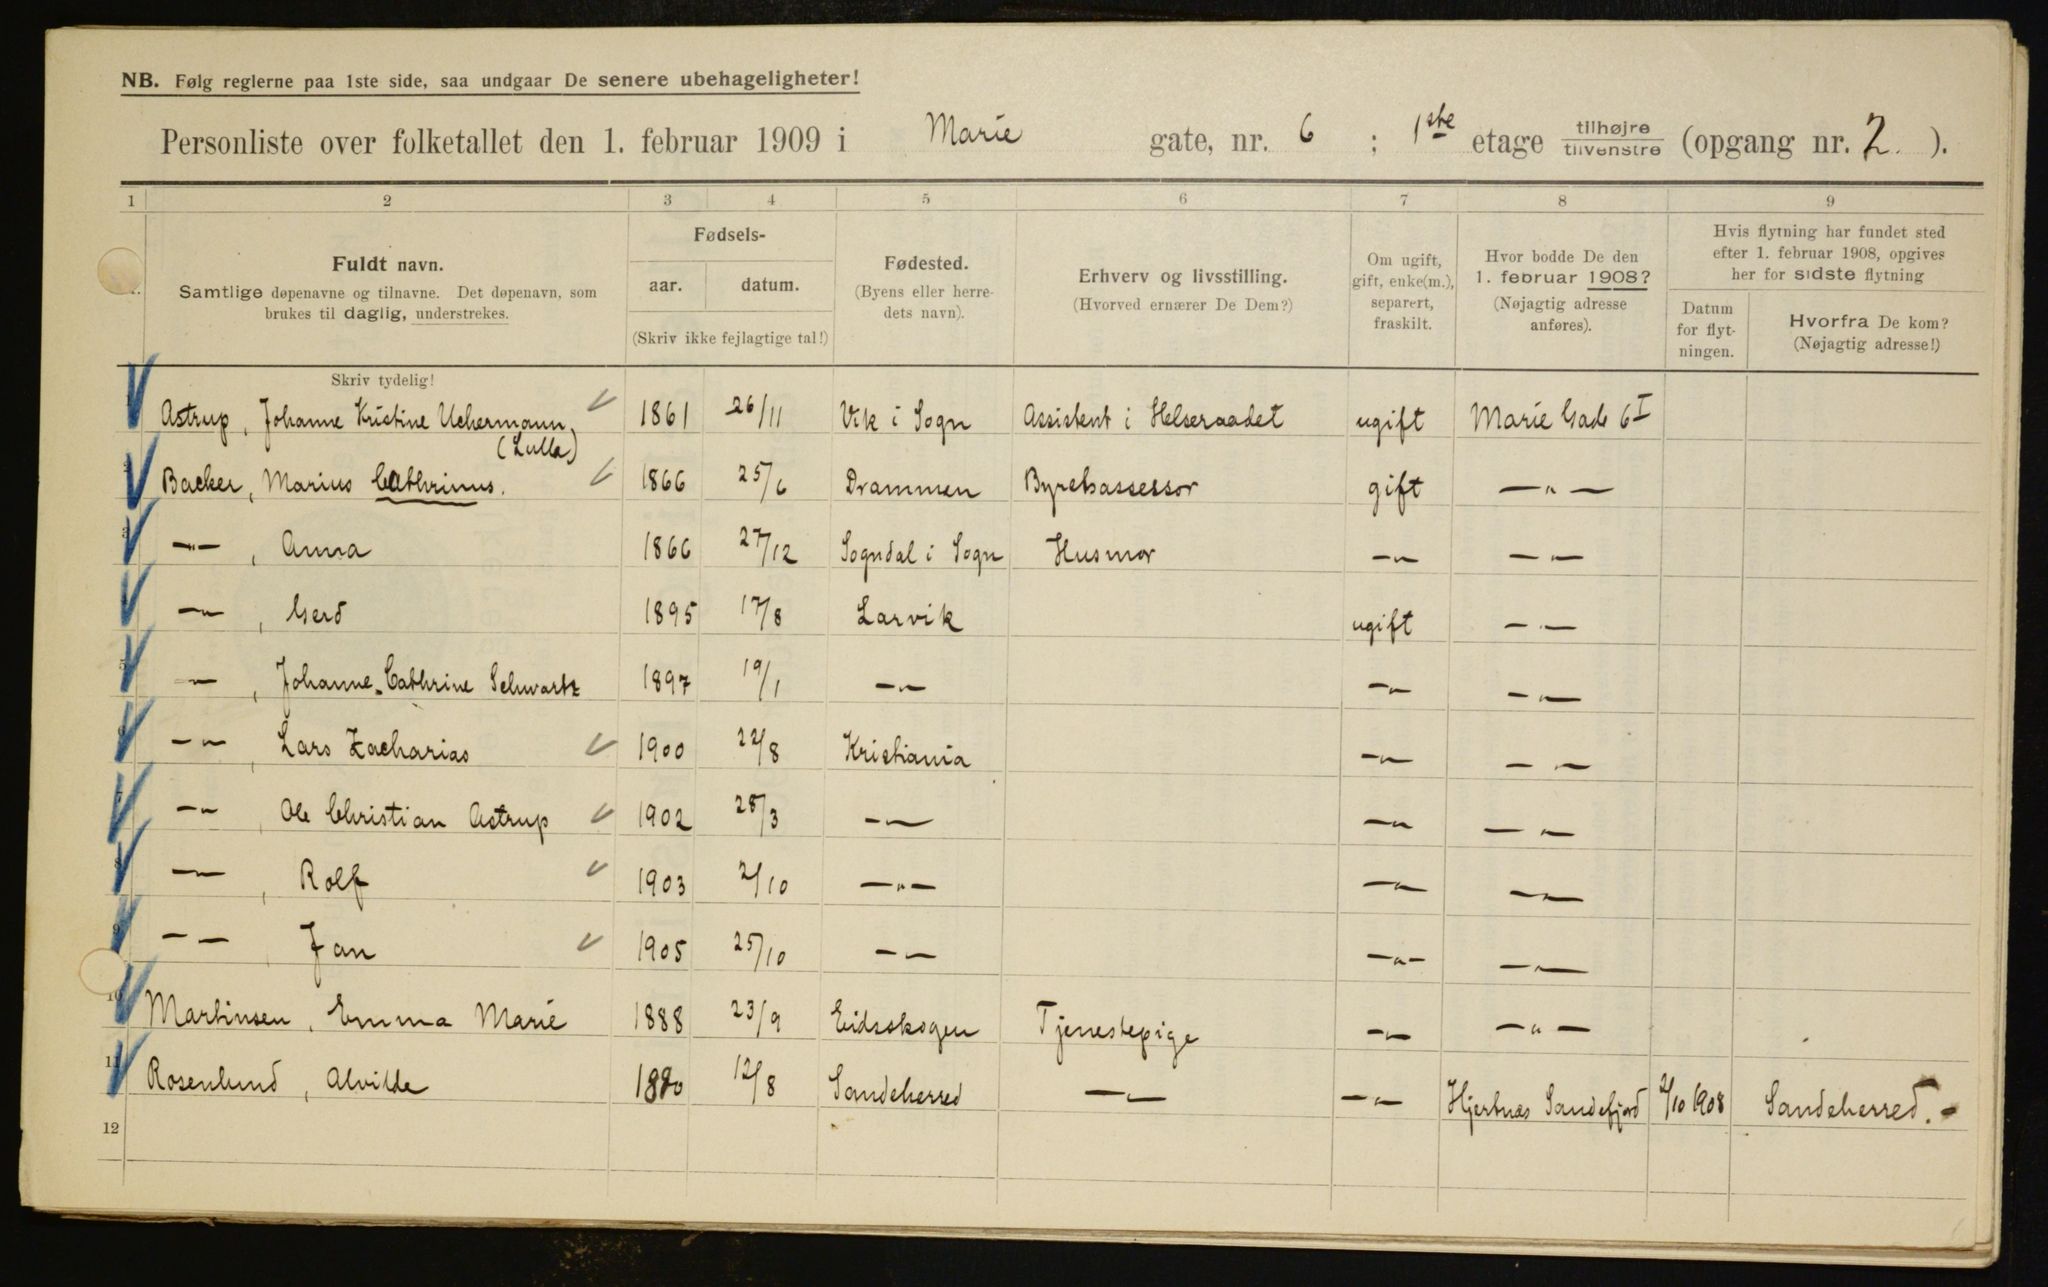 NB. Følg reglerne paa 1ste side, saa undgaar De senere ubehageligheter!
Personliste over folketallet den 1. februar 1909 i Marie gate, nr. 6 ; 1ste etage tilhøjre tilvenstre (opgang nr. 2 ).
1 2 3 4 5 6 7 8 9
Fuldt navn.
Samtlige døpenavne og tilnavne. Det døpenavn, som
brukes til daglig, understrekes.
Skriv tydelig!
Fødsels-
aar. datum.
(Skriv ikke fejlagtige tal!)
Fødested.
(Byens eller herre-
dets navn).
Erhverv og livsstilling.
(Hvorved ernærer De Dem?)
Om ugift,
gift, enke(m.),
separert,
fraskilt.
Hvor bodde De den
1. februar 1908?
(Nøjagtig adresse
anføres).
Hvis flytning har fundet sted
efter 1. februar 1908, opgives
her for sidste flytning
Datum
for flyt-
ningen.
Hvorfra De kom?
(Nøjagtig adresse!)
1 Astrup, Johanne Kristine Uchermann 1861 26/11 Vik i Sogn Assistent i Helseraadet ugift Marie Gade 6 I
(Lulla)
2 Backer, Marius Cathrinus. 1866 25/6 Drammen Byretsassessor gift —"—
3 —"—, Anna 1866 27/12 Sogndal i Sogn Husmor —"— —"—
4 —"—, Gerd 1895 17/8 Larvik ugift —"—
5 —"—, Johanne Cathrine Schwartz 1897 19/1 —"— —"— —"—
6 —"—, Lars Zacharias 1900 22/8 Kristiania —"— —"—
7 —"—, Ole Christian Astrup 1902 28/3 —"— —"— —"—
8 —"—, Rolf 1903 2/10 —"— —"— —"—
9 —"—, Jan 1905 25/10 —"— —"— —"—
10 Martinsen, Emma Marie 1888 23/9 Eidsskogen Tjenestepige —"— —"—
11 Rosenlund, Alvilde 1890 12/8 Sandeherred —"— —"— Hjertnæs Sandefjord 2/10 1908 Sandeherred.-
12